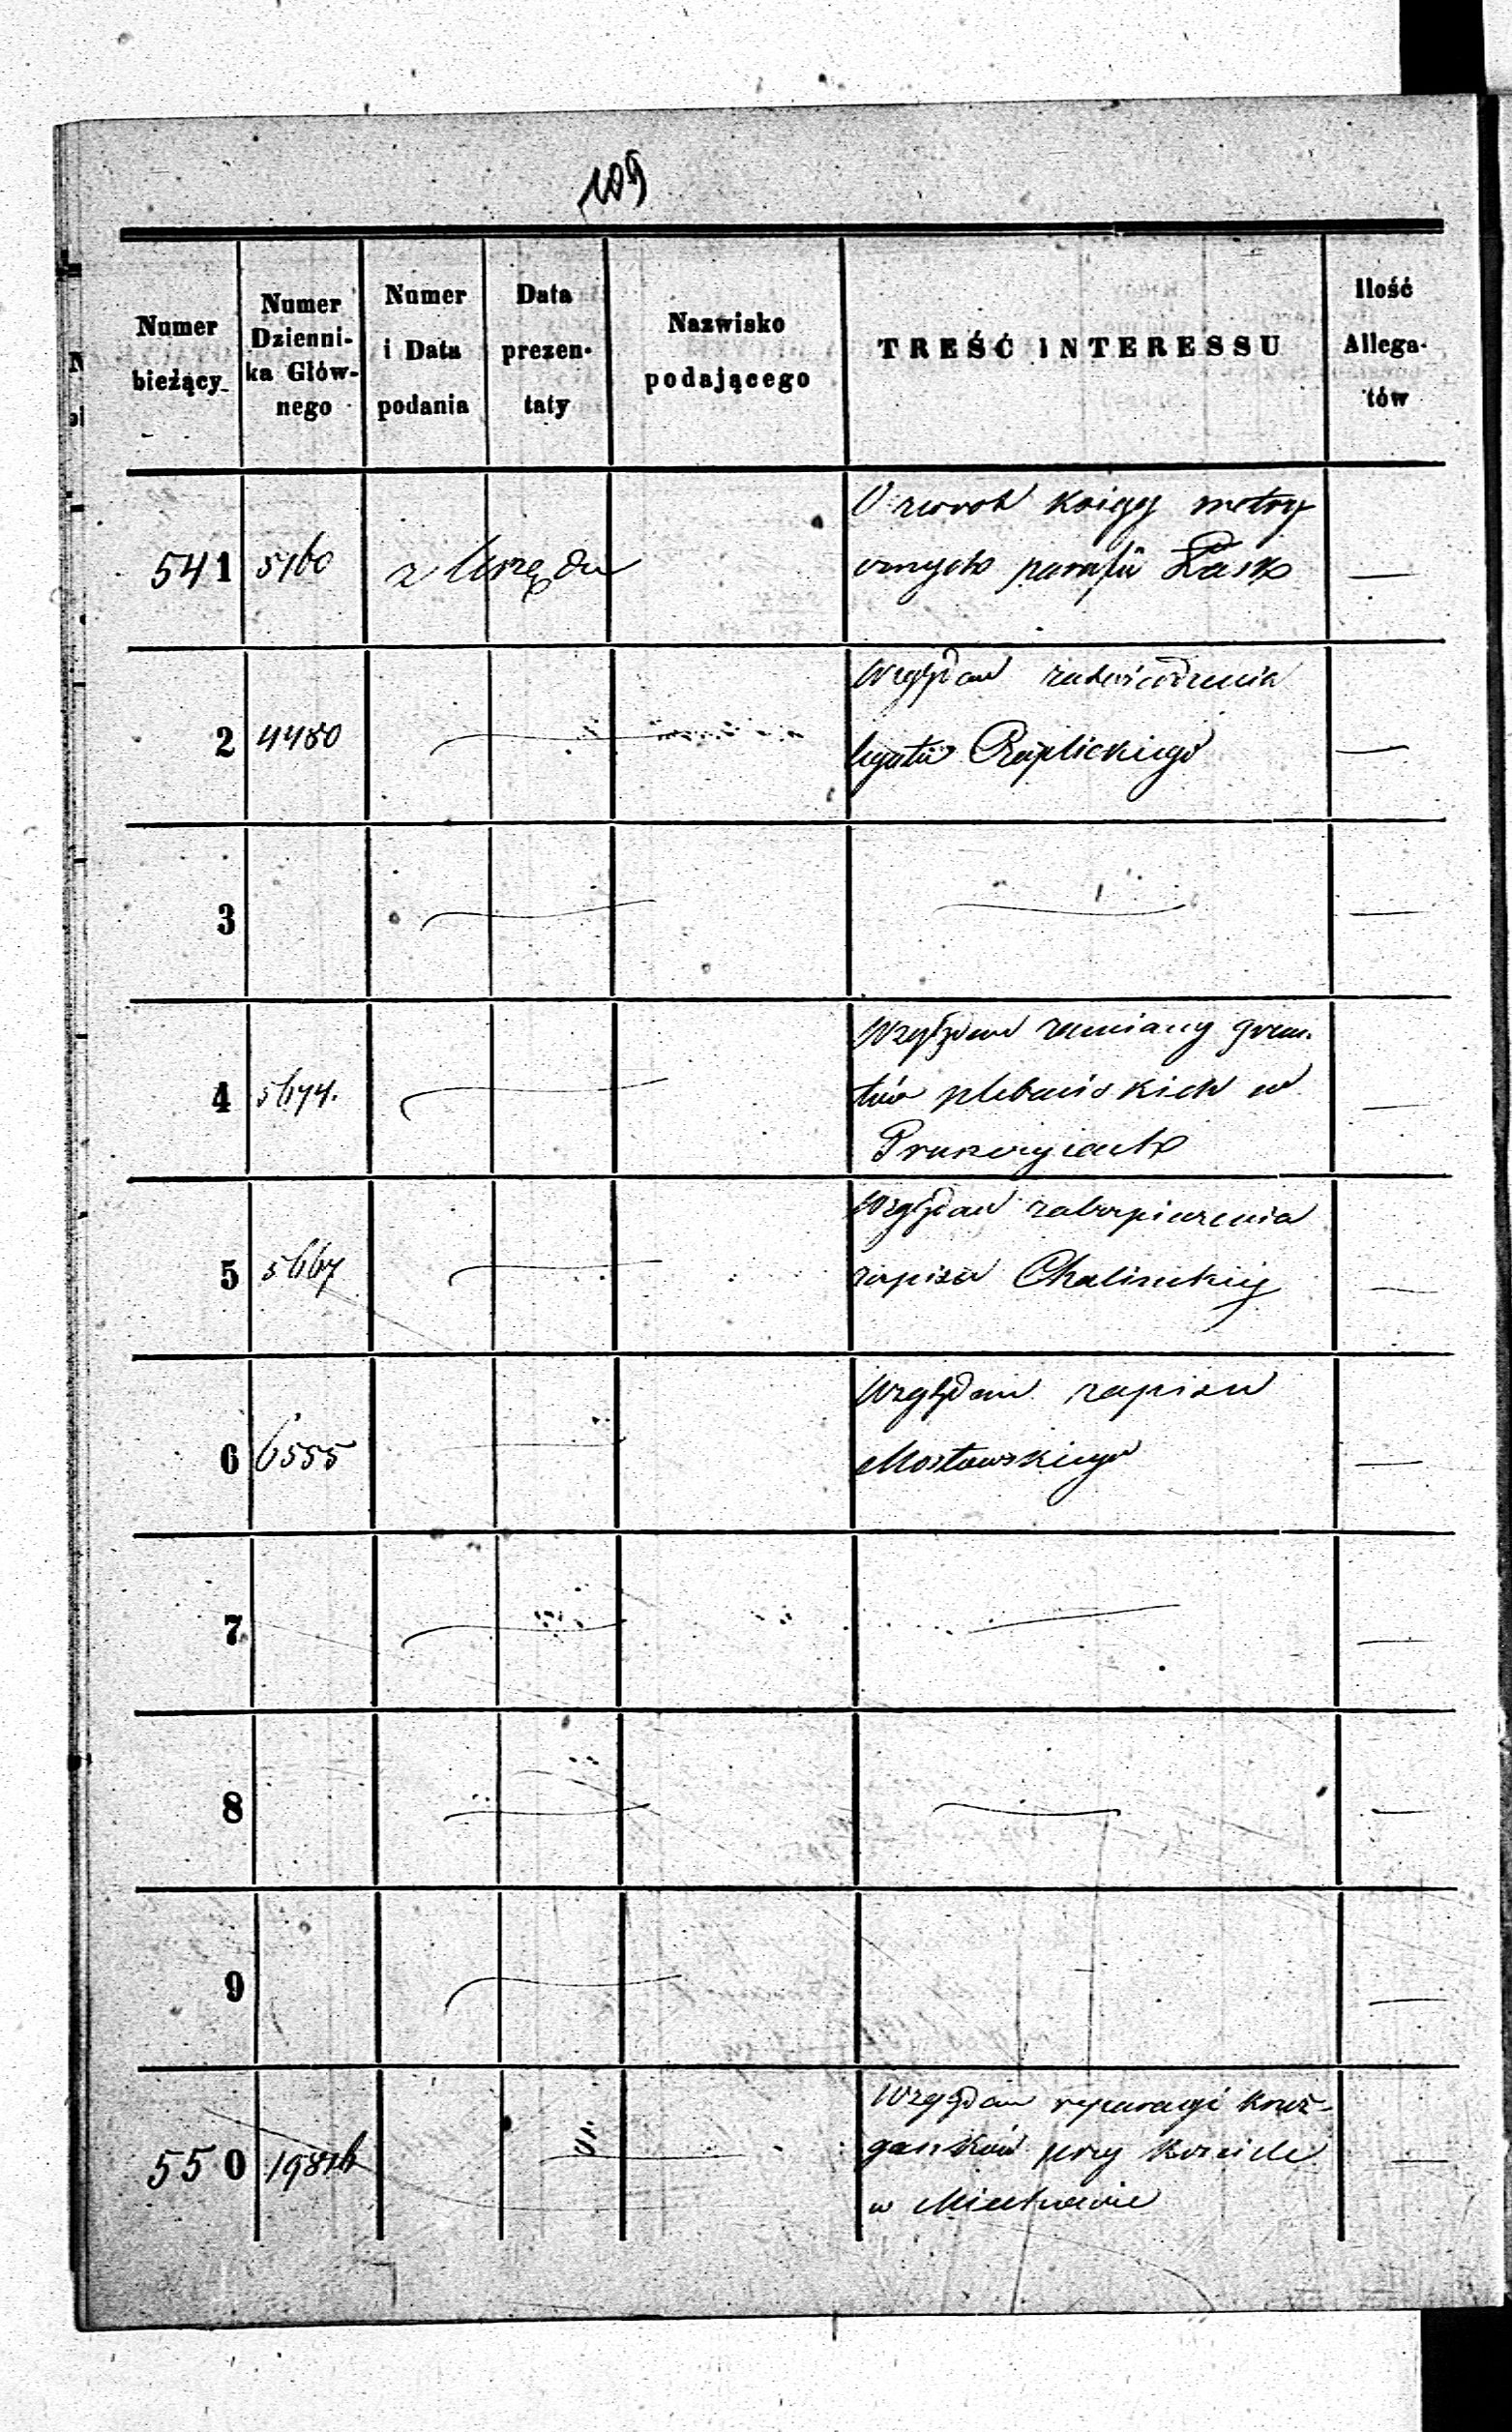 109
Numer
bieżący
Numer
Dzienni-
ka Głów-
nego
Numer
i Data
podania
Data
prezen-
taty
Nazwisko
podającego
TREŚĆ INTERESSU
Ilość
Allega-
tów
541 5160 z Urzędu O zwrot księg metry
cznych parafii Łask —
2 4480 — Względem zatwierdzenia
legatu Czaplickiego —
3 — — —
4 5674. — Względem zamiany grun-
tów plebańskich w —
5 5667 — Względem zabezpieczenia
zapisu —
6 6555 — Względem zapisu
Mostowskiego —
7 — — —
8 — — —
9 — —
550 — Względem reparacyi kruż-
ganków przy kościele —
w